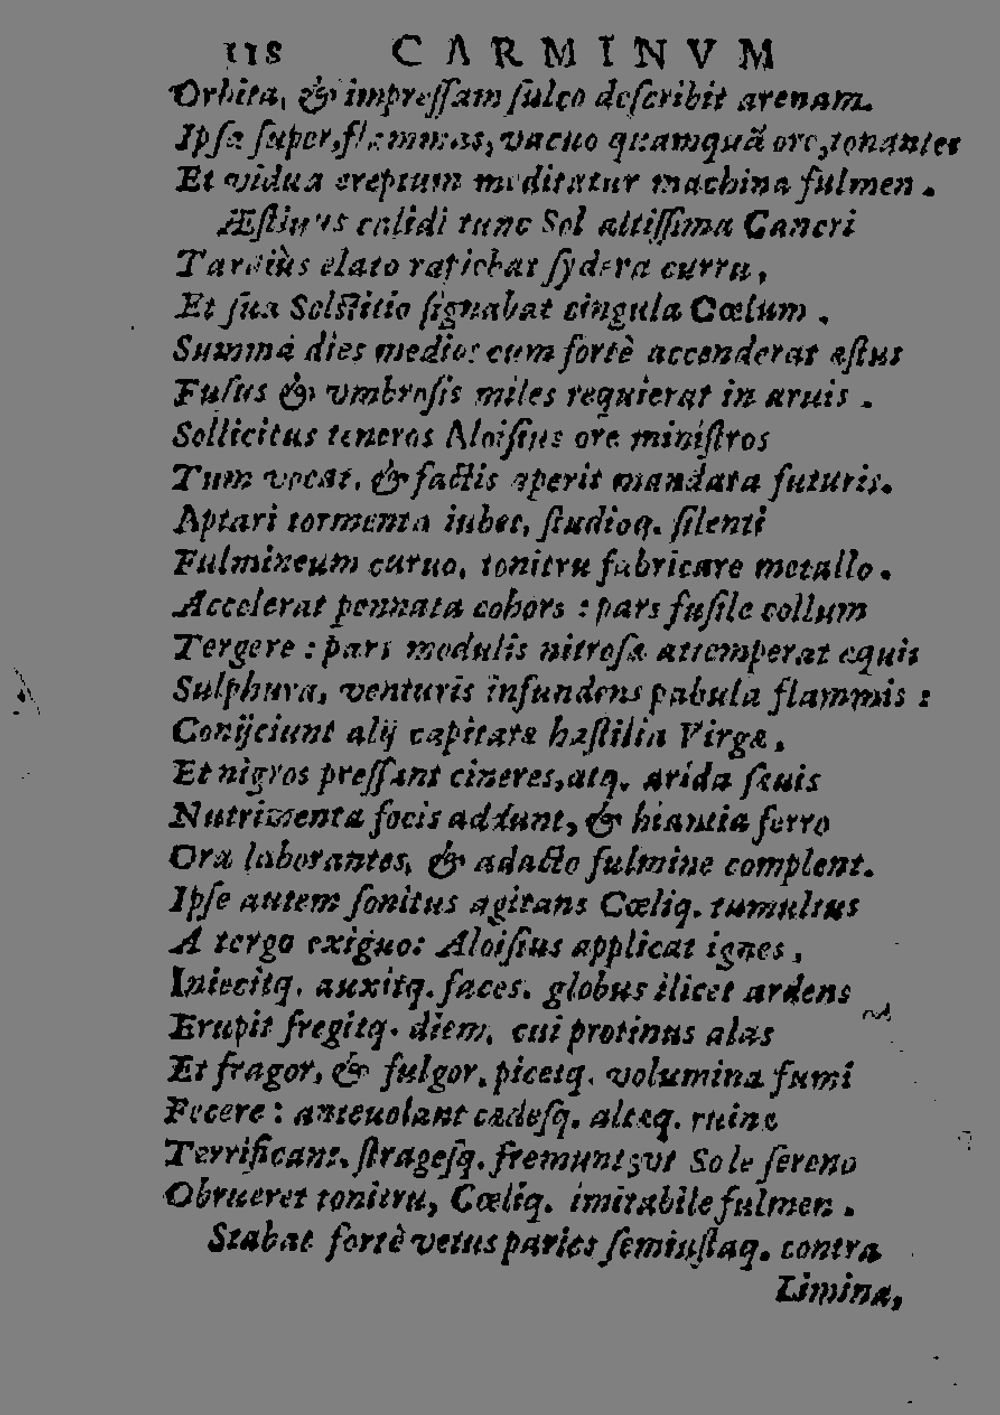 118 CARMINVM
Orbita, & impreſſam ſulco deſcribit arenam.
Ipſa ſuper, flammas, vacuo quamquã ore, tonantes
Et vidua ereptum meditatur machina fulmen.
Æſtiuus calidi tunc Sol altiſſima Cancri
Tardiùs elato rapiebat ſydera curru,
Et ſua Solſtitio ſignabat cingula Cœlum.
Summa dies medios cum fortè accenderat æſtus
Fuſus & vmbroſis miles requierat in aruis.
Sollicitus teneros Aloiſius ore miniſtros
Tum vocat, & factis aperit mandata futuris.
Aptari tormenta iubet, ſtudioq. ſilenti
Fulmineum curuo, tonitru fabricare metallo.
Accelerat pennata cohors : pars fuſile collum
Tergere : pars modulis nitroſa attemperat equis
Sulphura, venturis infundens pabula flammis :
Conijciunt alij capitata haſtilia Virgæ,
Et nigros preſſant cineres, atq. arida ſæuis
Nutrimenta focis addunt, & hiantia ferro
Ora laborantes, & adacto fulmine complent.
Ipſe autem ſonitus agitans Cœliq. tumultus
A tergo exiguos Aloiſius applicat ignes,
Iniecitq. auxitq. faces. globus ilicet ardens
Erupit fregitq. diem, cui protinus alas
Et fragor, & fulgor, piceiq. volumina fumi
Fecere : anteuolant cædeſq. altæq. ruinæ
Terrificant, ſtrageſq. fremunt, vt Sole ſereno
Obrueret tonitru, Cœliq. imitabile fulmen.
Stabat fortè vetus paries ſemiuſtaq. contra
Limina,